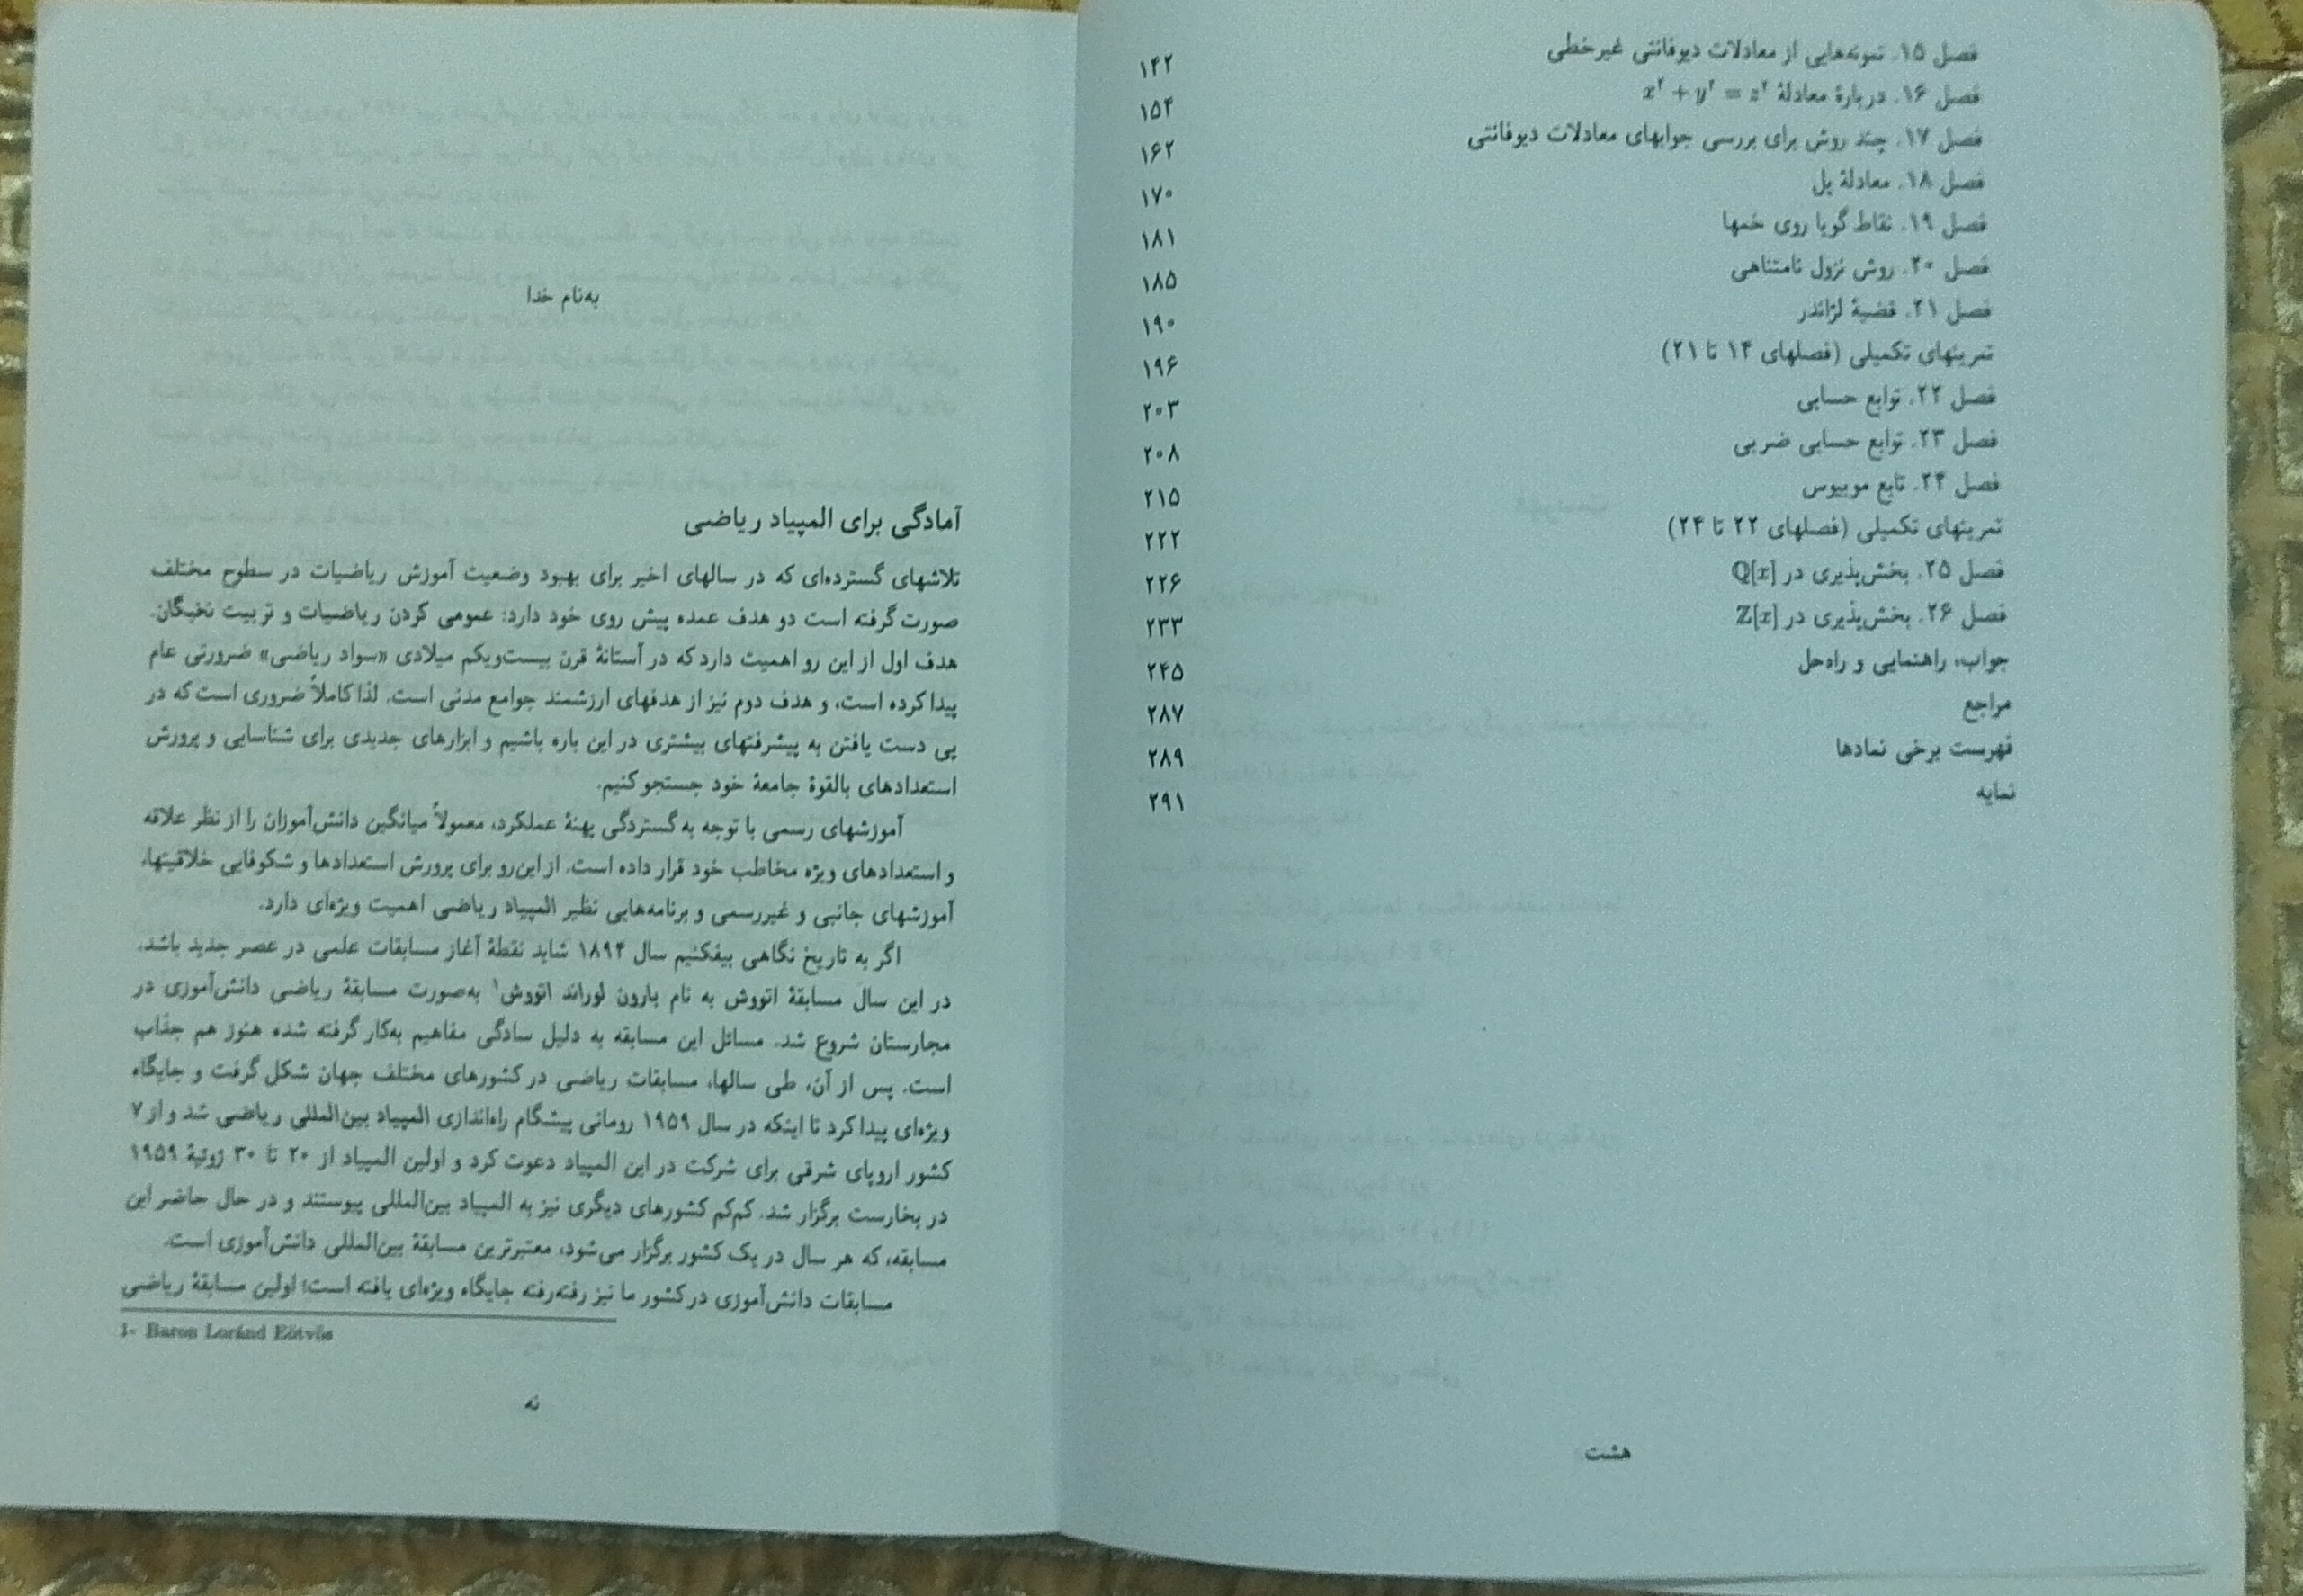 فصل ۱۵. نمونه‌هایی از معادلات دیوفانتی غیرخطی ۱۴۲
فصل ۱۶. دربارهٔ معادلهٔ x² + y² = z² ۱۵۴
فصل ۱۷. چند روش برای بررسی جوابهای معادلات دیوفانتی ۱۶۲
فصل ۱۸. معادلهٔ پل ۱۷۰
فصل ۱۹. نقاط گویا روی خمها ۱۸۱
فصل ۲۰. روش نزول نامتناهی ۱۸۵
فصل ۲۱. قضیهٔ لژاندر ۱۹۰
تمرینهای تکمیلی (فصلهای ۱۴ تا ۲۱) ۱۹۶
فصل ۲۲. توابع حسابی ۲۰۳
فصل ۲۳. توابع حسابی ضربی ۲۰۸
فصل ۲۴. تابع موبیوس ۲۱۵
تمرینهای تکمیلی (فصلهای ۲۲ تا ۲۴) ۲۲۲
فصل ۲۵. بخش‌پذیری در Q[x] ۲۲۶
فصل ۲۶. بخش‌پذیری در Z[x] ۲۳۳
جواب، راهنمایی و راه‌حل ۲۴۵
مراجع ۲۸۷
فهرست برخی نمادها ۲۸۹
نمایه ۲۹۱
هشت
به‌نام خدا
آمادگی برای المپیاد ریاضی
تلاشهای گسترده‌ای که در سالهای اخیر برای بهبود وضعیت آموزش ریاضیات در سطوح مختلف
صورت گرفته است دو هدف عمده پیش روی خود دارد: عمومی کردن ریاضیات و تربیت نخبگان.
هدف اول از این رو اهمیت دارد که در آستانهٔ قرن بیست‌ویکم میلادی «سواد ریاضی» ضرورتی عام
پیدا کرده است، و هدف دوم نیز از هدفهای ارزشمند جوامع مدنی است. لذا کاملاً ضروری است که در
پی دست یافتن به پیشرفتهای بیشتری در این باره باشیم و ابزارهای جدیدی برای شناسایی و پرورش
استعدادهای بالقوهٔ جامعهٔ خود جستجو کنیم.
آموزشهای رسمی با توجه به گستردگی پهنهٔ عملکرد، معمولاً میانگین دانش‌آموزان را از نظر علاقه
و استعدادهای ویژه مخاطب خود قرار داده است. از این‌رو برای پرورش استعدادها و شکوفایی خلاقیتها،
آموزشهای جانبی و غیررسمی و برنامه‌هایی نظیر المپیاد ریاضی اهمیت ویژه‌ای دارد.
اگر به تاریخ نگاهی بیفکنیم سال ۱۸۹۴ شاید نقطهٔ آغاز مسابقات علمی در عصر جدید باشد.
در این سال مسابقهٔ اتووش به نام بارون لوراند اتووش۱ به‌صورت مسابقهٔ ریاضی دانش‌آموزی در
مجارستان شروع شد. مسائل این مسابقه به دلیل سادگی مفاهیم به‌کار گرفته شده هنوز هم جذاب
است. پس از آن، طی سالها، مسابقات ریاضی در کشورهای مختلف جهان شکل گرفت و جایگاه
ویژه‌ای پیدا کرد تا اینکه در سال ۱۹۵۹ رومانی پیشگام راه‌اندازی المپیاد بین‌المللی ریاضی شد و از ۷
کشور اروپای شرقی برای شرکت در این المپیاد دعوت کرد و اولین المپیاد از ۲۰ تا ۳۰ ژوئیهٔ ۱۹۵۹
در بخارست برگزار شد. کم‌کم کشورهای دیگری نیز به المپیاد بین‌المللی پیوستند و در حال حاضر این
مسابقه، که هر سال در یک کشور برگزار می‌شود، معتبرترین مسابقهٔ بین‌المللی دانش‌آموزی است.
مسابقات دانش‌آموزی در کشور ما نیز رفته‌رفته جایگاه ویژه‌ای یافته است؛ اولین مسابقهٔ ریاضی
1- Baron Loránd Eötvös
نه